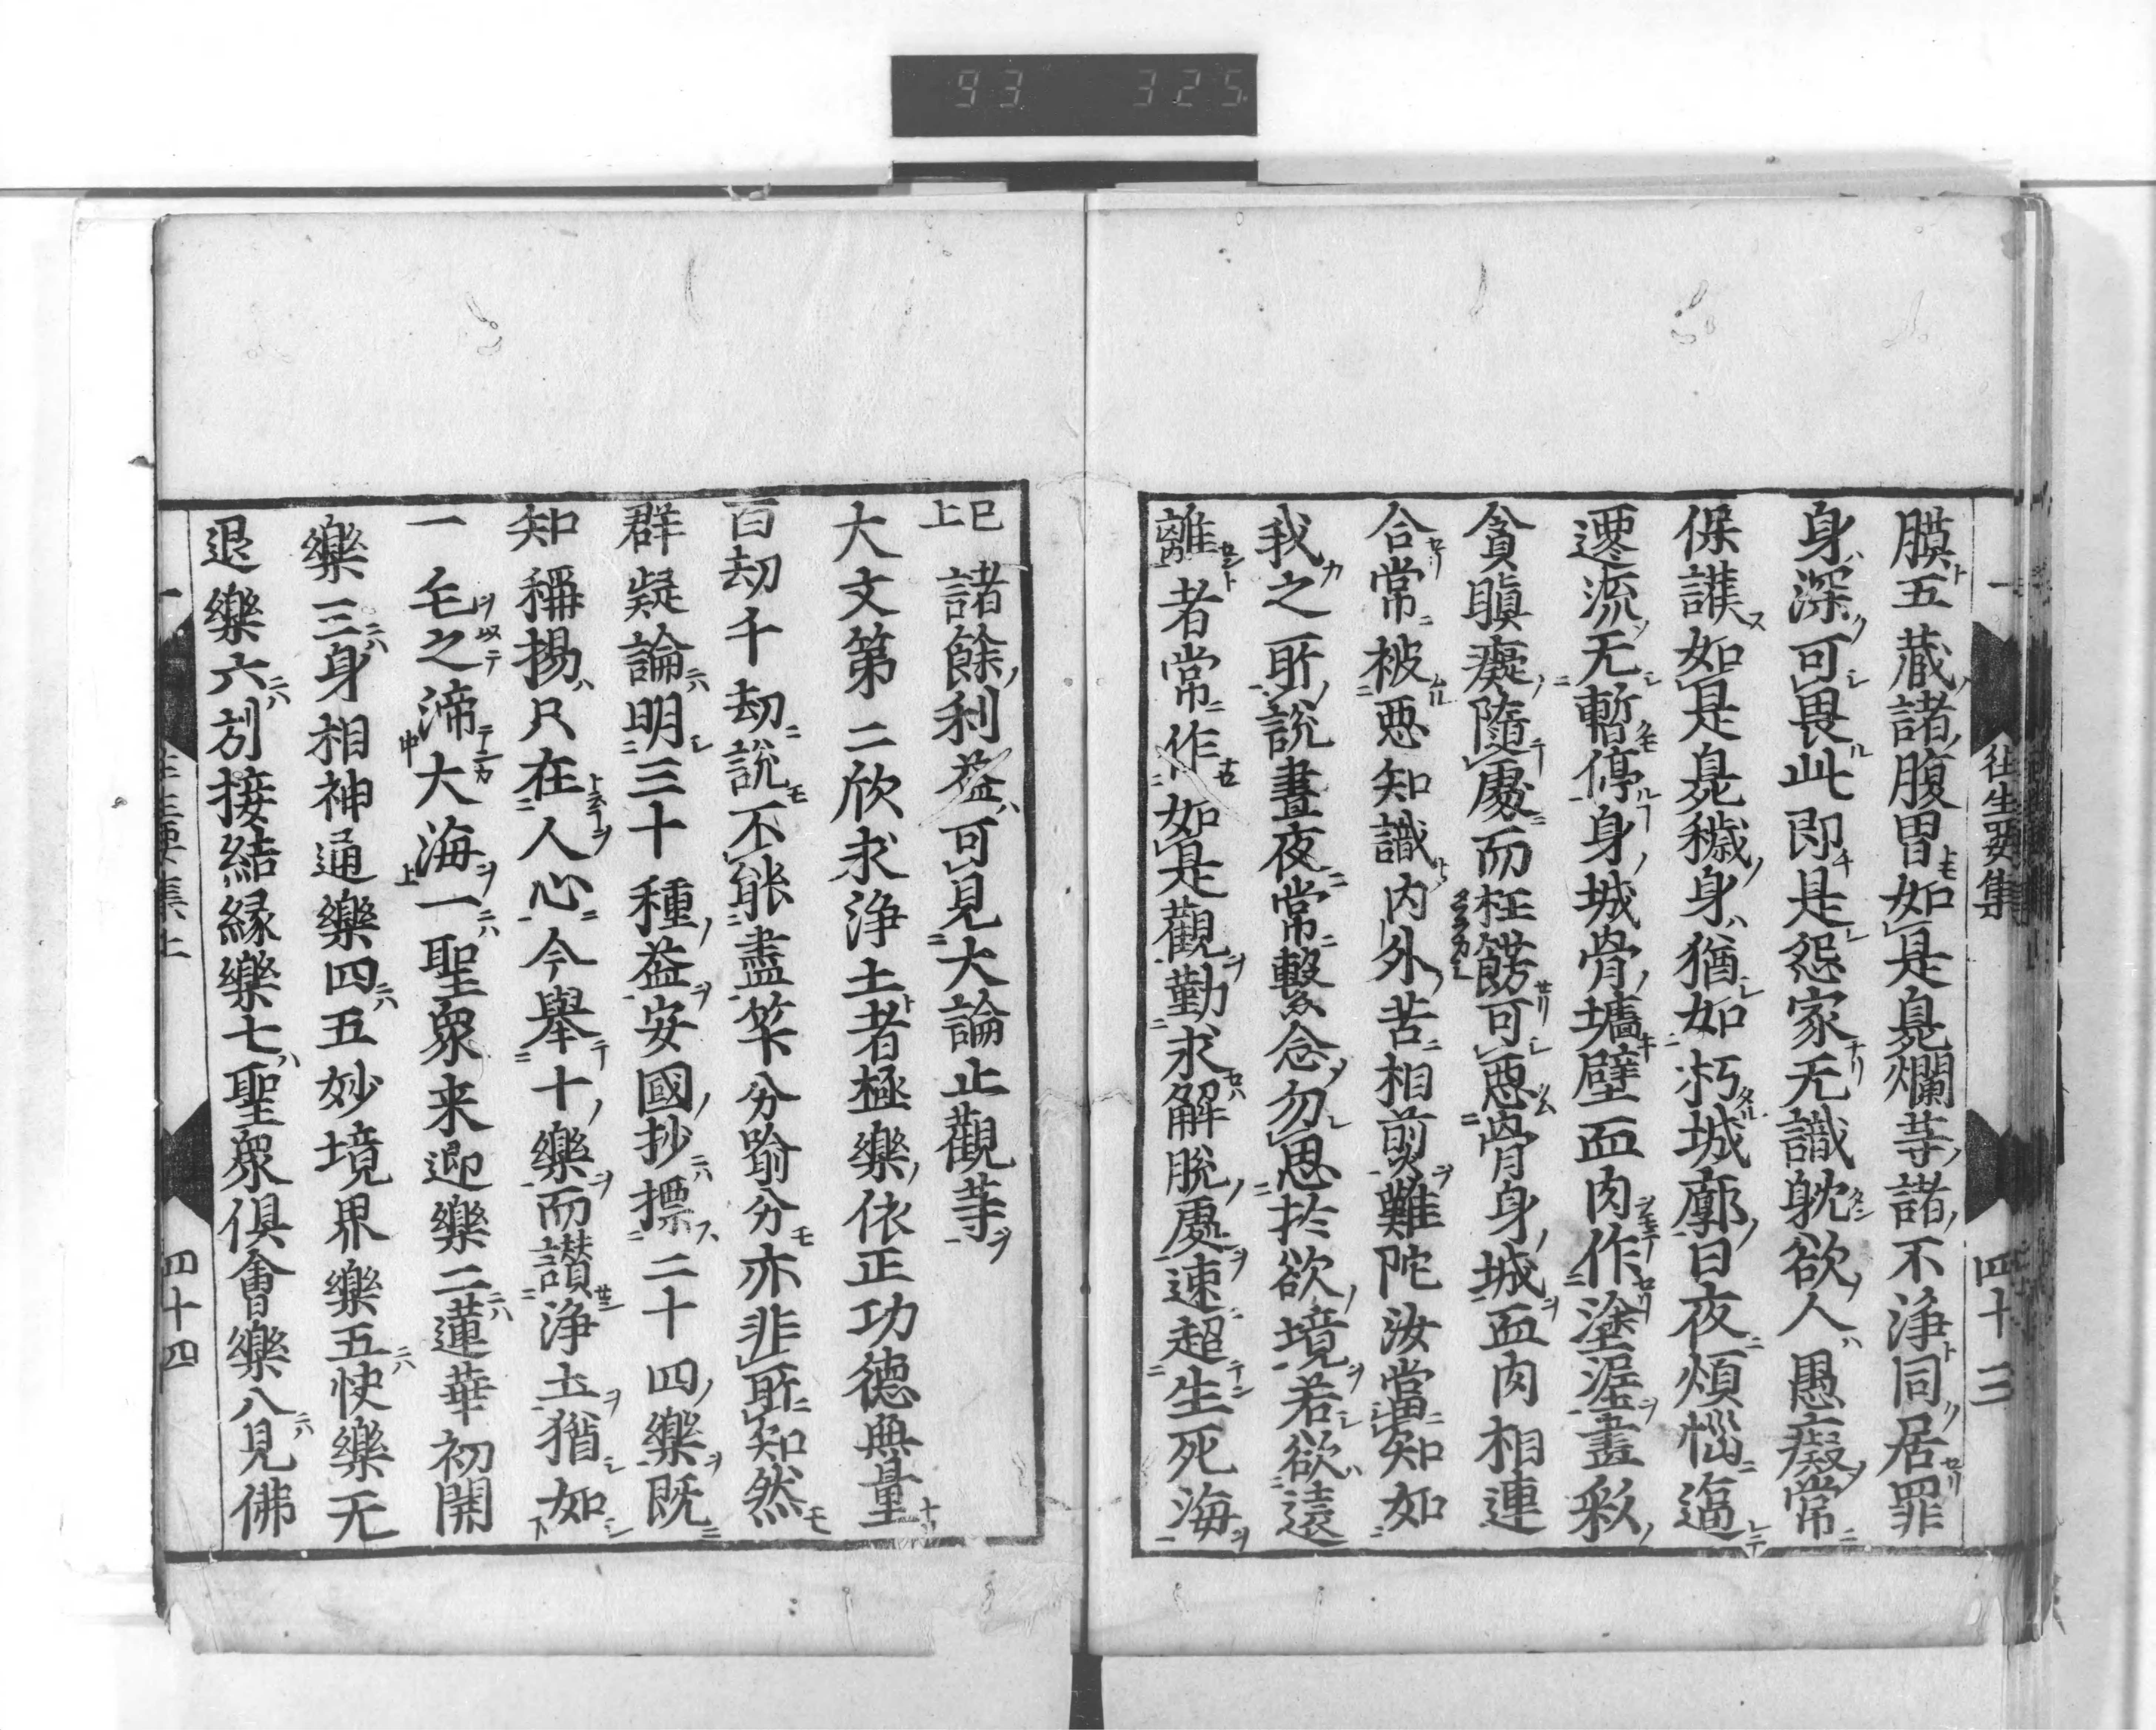 93 325
往生要集 四十三
膜五蔵諸腹胃如是臰爛等諸不浄同居罪
身深可畏此即是怨家无識躭欲人愚癡常
保護如是臰穢身猶如朽城廓日夜煩惱逼
遷流无暫停身城骨墻壁血肉作塗泥畫彩
貪瞋癡隨處而枉餝可惡骨身城血肉相連
合常被惡知識内外苦相煎難陀汝當知如
我之所説晝夜常繫念勿思於欲境若欲遠
離者常作如是觀勤求解脱處速超生死海
已上諸餘利益可見大論止觀等
大文第二欣求浄土者極樂依正功德無量
百劫千劫説不能盡筭分喻分亦非所知然
群疑論明三十種益安國抄標二十四樂既
知稱揚只在人心今擧十樂而讃浄土猶如
一毛之渧大海一聖衆来迎樂二蓮華初開
樂三身相神通樂四五妙境界樂五快樂无
退樂六引接結縁樂七聖衆俱會樂八見佛
四十四